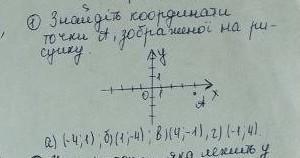 ① Знайдіть координати
точки A, зображеної на ри-
сунку.
y
1
0 1 x
A
а) (-4;1); б) (1;-4); в) (4;-1), г) (-1;4)
яка лежить у